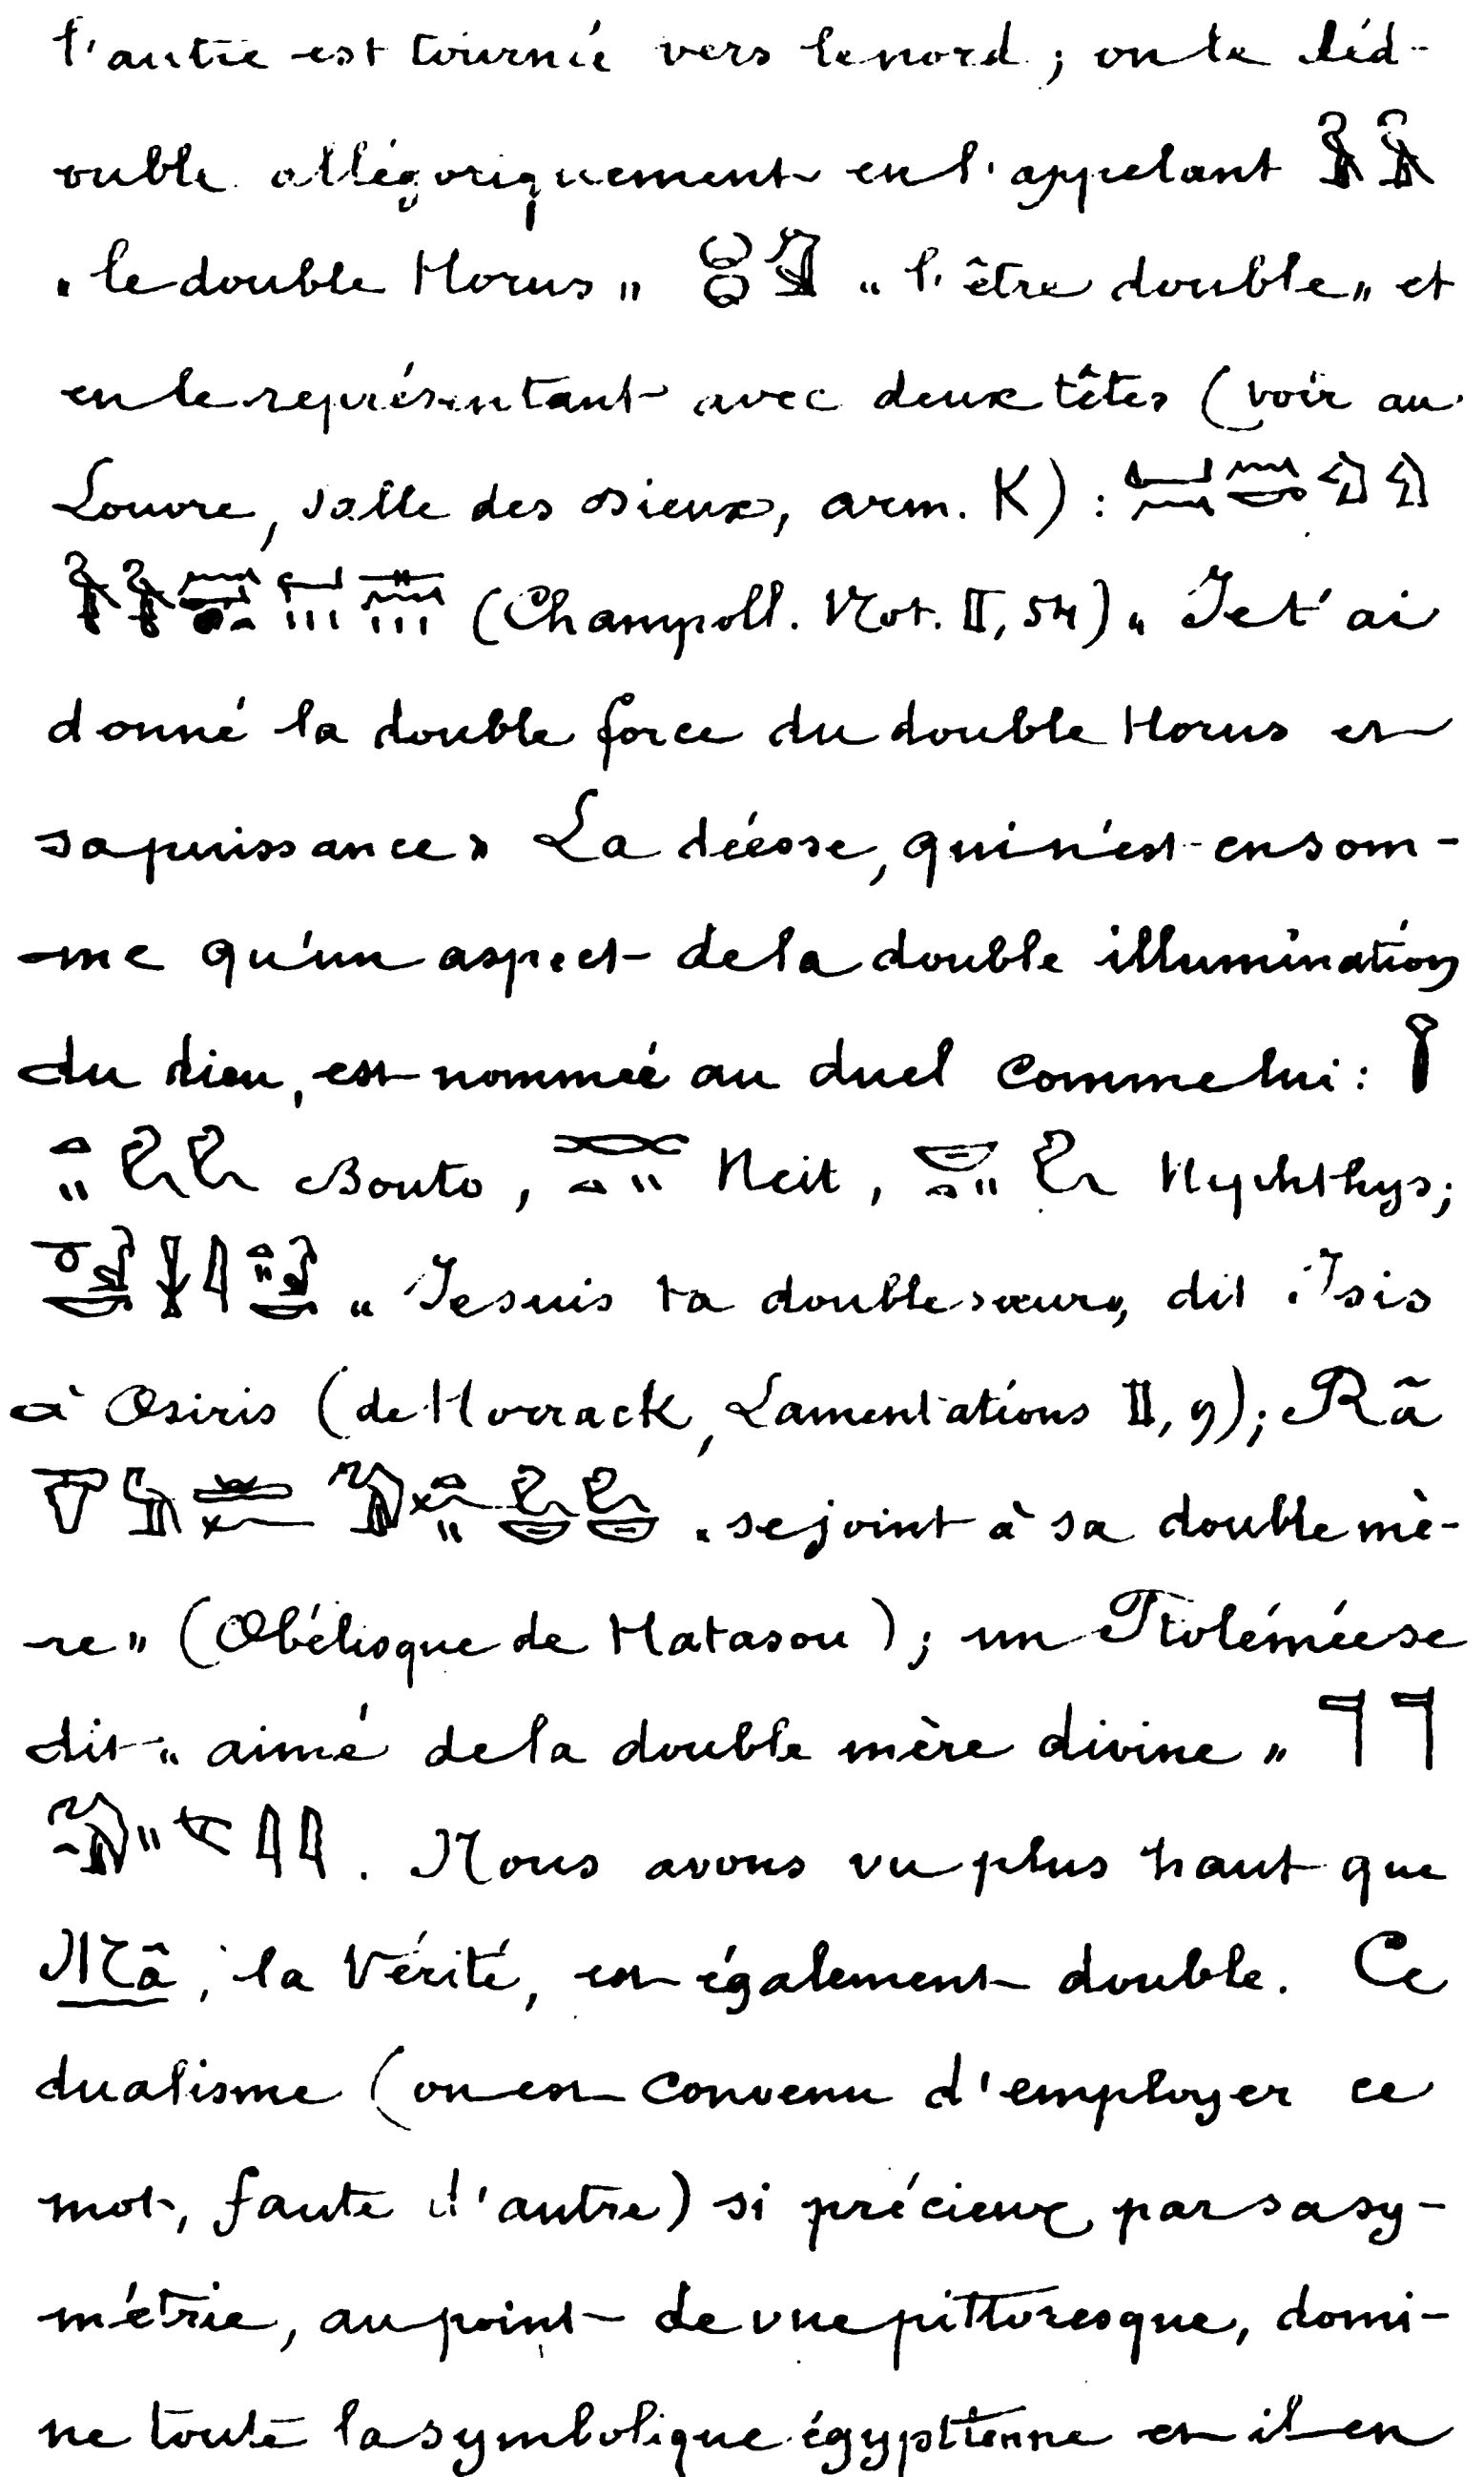 l'autre est tournée vers le nord ; on le déd-
ouble allégoriquement en l'appelant
« le double Horus » « l'être double » et
en le représentant avec deux têtes (voir au
Louvre, salle des Dieux, arm. K) :
(Champoll. Not. II, 54) « Je t'ai
donné la double force du double Horus et
sa puissance » La déesse, qui n'est en som-
-me qu'un aspect de la double illumination
du dieu, est nommée au duel comme lui :
Bouto, Neit, Nephthys ;
« Je suis ta double sœur, dit Isis
à Osiris (de Horrack, Lamentations II, 9) ; Râ
« se joint à sa double mè-
-re » (Obélisque de Hatasou) ; un Ptolémée se
dit « aimé de la double mère divine »
. Nous avons vu plus haut que
Mâ, la Vérité, est également double. Ce
dualisme (on est convenu d'employer ce
mot, faute d'autre) si précieux, par sa sy-
métrie, au point de vue pittoresque, domi-
ne toute la symbolique égyptienne et il en